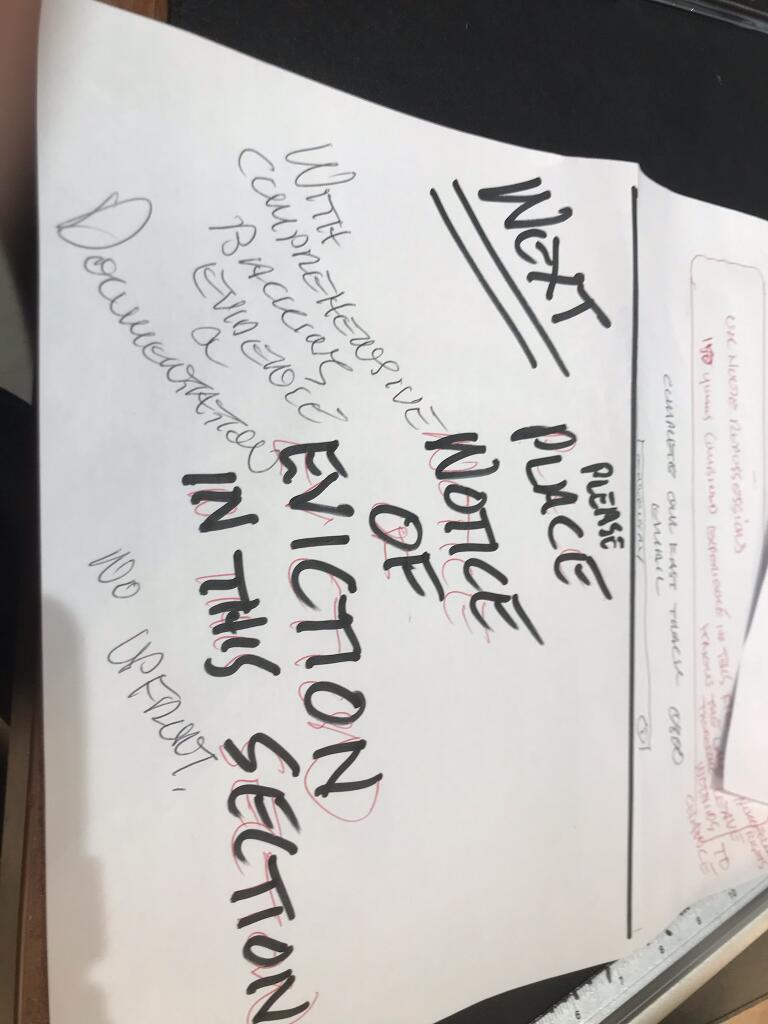 UK HOUSE REPOSSESSIONS
YEARS COMBINED EXPERIENCE IN THIS
KNOW THE LAW LEAVE
NOTHING TO
CHANCE
RIGHTS
COMPLETE OUR FAST TRACK 0800
EMAIL
NEXT
PLEASE
PLACE
NOTICE
OF
EVICTION
IN THIS SECTION
WITH
COMPREHENSIVE
BACKING
EVIDENCE
&
DOCUMENTATION
NO UPFRONT,